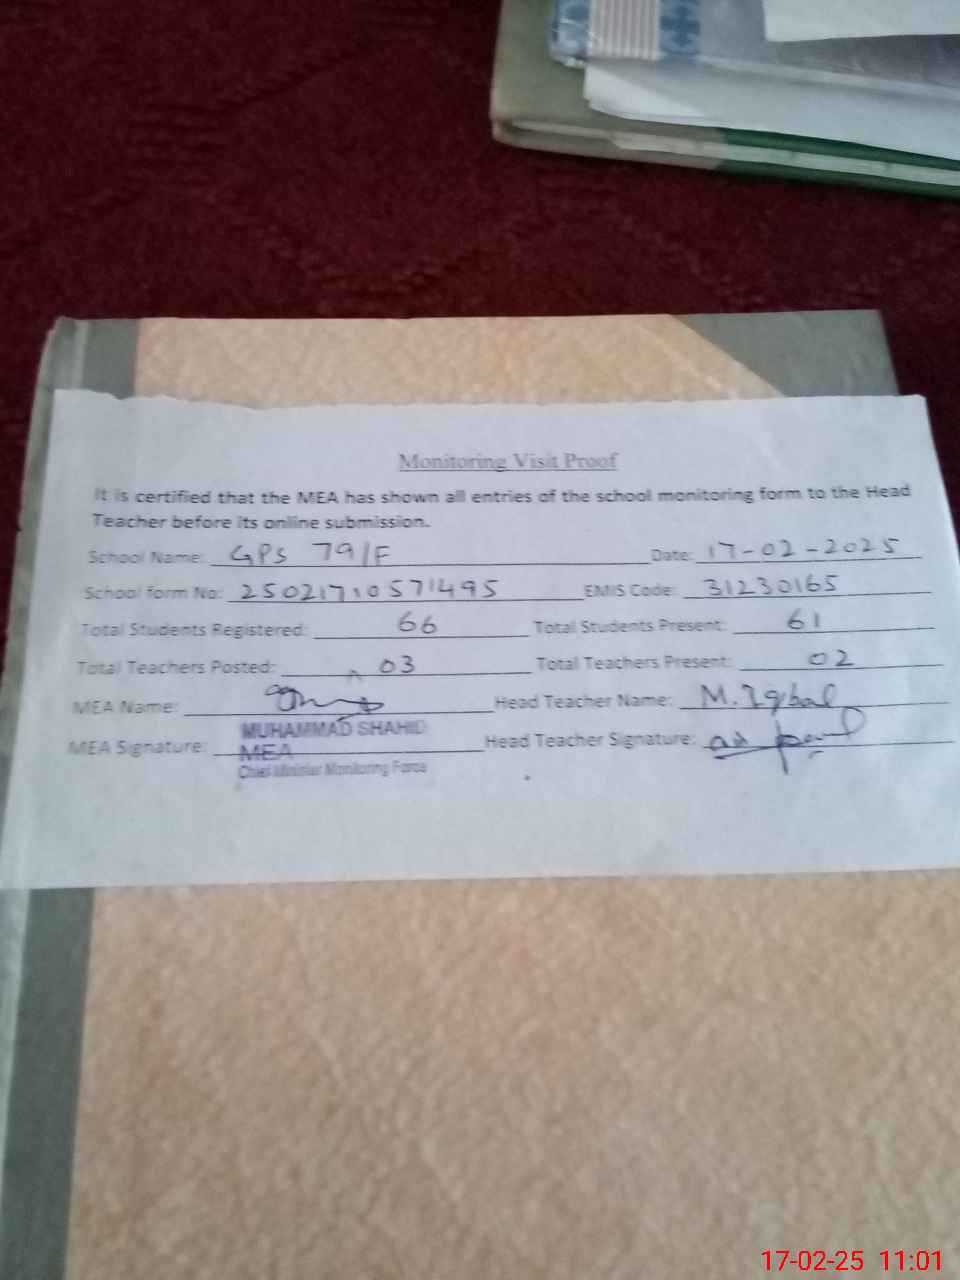 Monitoring Visit Proof
It is certified that the MEA has shown all entries of the school monitoring form to the Head
Teacher before its online submission.
School Name: GPS 79/F Date: 17-02-2025
School form No: 25021710571495 EMIS Code: 31230165
Total Students Registered: 66 Total Students Present: 61
Total Teachers Posted: 03 Total Teachers Present: 02
MEA Name: Head Teacher Name: M. Iqbal
MUHAMMAD SHAHID
MEA Signature: MEA Head Teacher Signature:
Chief Minister Monitoring Force
17-02-25 11:01